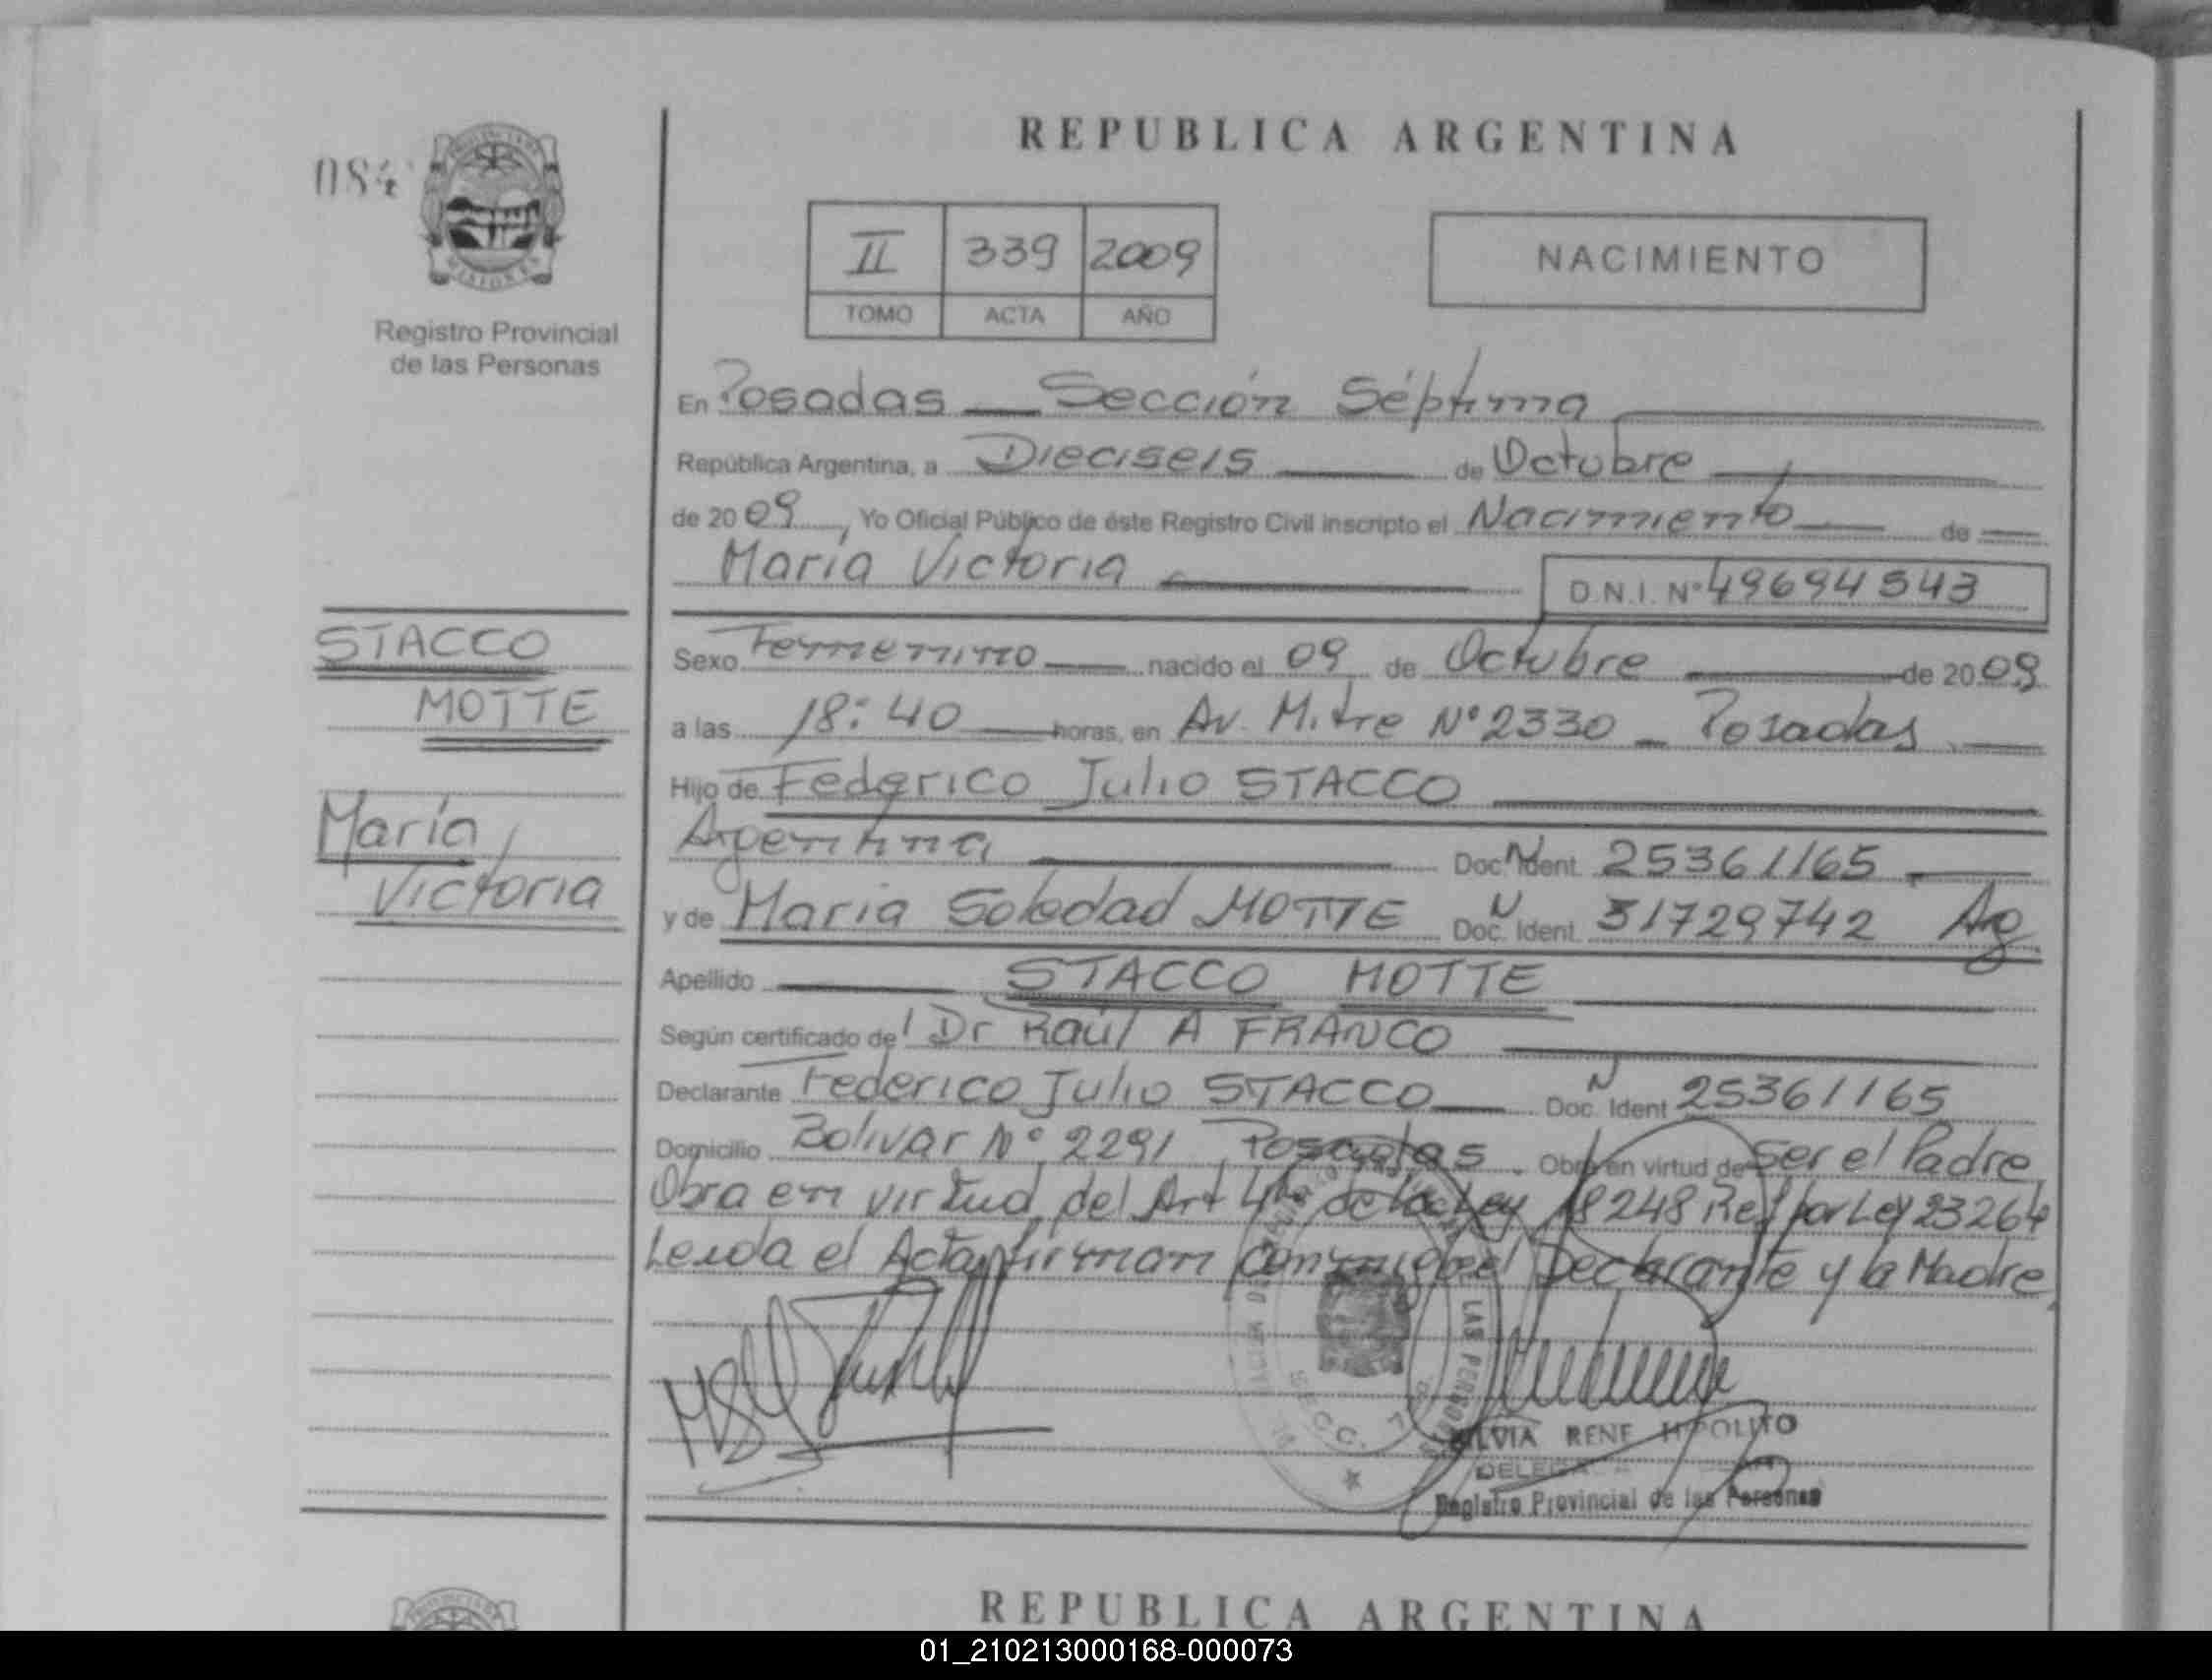 REPUBLICA ARGENTINA
084
PROVINCIA DE
MISIONES
Registro Provincial
de las Personas
II 339 2009
TOMO ACTA AÑO
NACIMIENTO
En Posadas — Sección Séptima
República Argentina, a Dieciseis de Octubre
de 2009, Yo Oficial Público de éste Registro Civil inscripto el Nacimiento de
María Victoria
D.N.I. Nº 49694543
STACCO
MOTTE
María
Victoria
Sexo Femenino nacido el 09 de Octubre de 2009
a las 18:40 horas, en Av. Mitre Nº 2330 - Posadas
Hijo de Federico Julio STACCO
Argentina Doc. N Ident. 25361165
y de María Soledad MOTTE Doc. N Ident. 31729742 Arg
Apellido STACCO MOTTE
Según certificado del Dr Raúl A FRANCO
Declarante Federico Julio STACCO Doc. N Ident 25361165
Domicilio Bolivar Nº 2291 Posadas. Obra en virtud de Ser el Padre
Obra en virtud del Art 4to de la Ley 18248 Ref por Ley 23264
Leida el Acta firman conmigo el Declarante y la Madre
LAS PERSONAS
SECC. 7
SILVIA RENE HIPOLITO
Registro Provincial de las Personas
REPUBLICA ARGENTINA
01_210213000168-000073